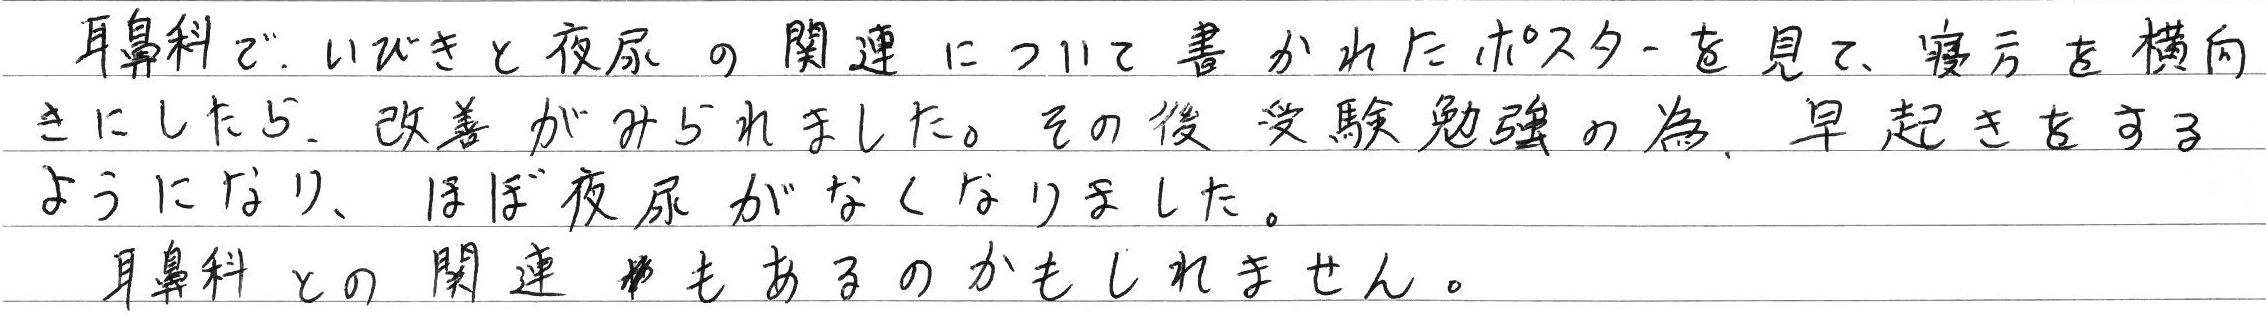 耳鼻科で、いびきと夜尿の関連について書かれたポスターを見て、寝方を横向
きにしたら、改善がみられました。その後受験勉強の為、早起きをする
ようになり、ほぼ夜尿がなくなりました。
耳鼻科との関連もあるのかもしれません。